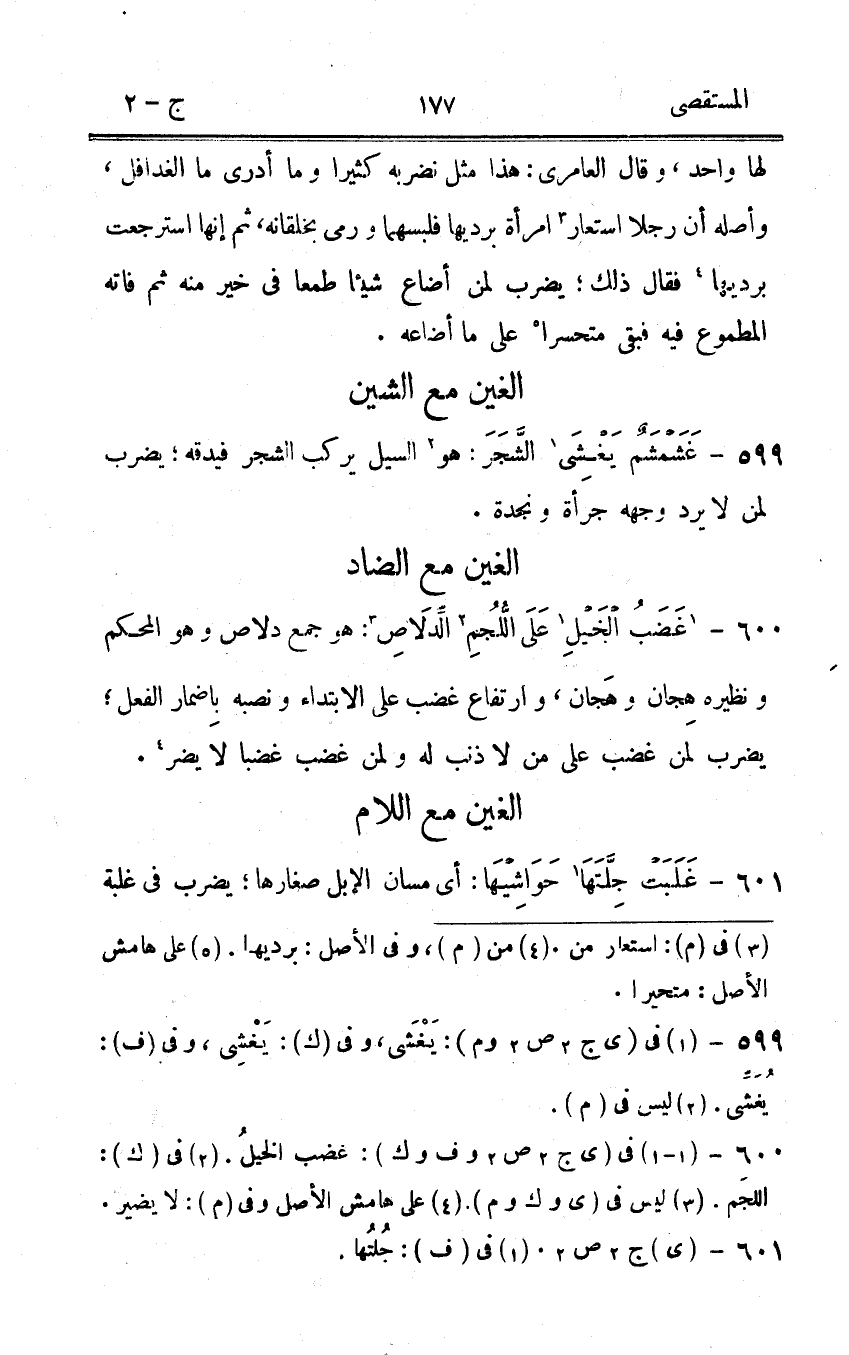 المستقصى ١٧٧ ج - ٢
لها واحد ، و قال العامرى : هذا مثل نضربه كثيرا و ما أدرى ما الغدافل ،
وأصله أن رجلا استعار٣ امرأة برديها فلبسهما و رمى بخلقانه، ثم إنها استرجعت
برديها٤ فقال ذلك ؛ يضرب لمن أضاع شيئا طمعا فى خير منه ثم فاته
المطموع فيه فبقى متحسرا٥ على ما أضاعه .
الغين مع الشين
٥٩٩ - غَشَمْشَمٌ يَغْشِى١ الشَّجَرَ : هو٢ السيل يركب الشجر فيدقه ؛ يضرب
لمن لا يرد وجهه جرأة و نجدة .
الغين مع الضاد
٦٠٠ - ١غَضَبُ الْخَيْلِ١ عَلَى اللُّجُمِ٢ الدِّلَاصِ٣: هو جمع دلاص و هو المحكم
و نظيره هِجان و هَجان ، و ارتفاع غضب على الابتداء و نصبه بإضمار الفعل ؛
يضرب لمن غضب على من لا ذنب له و لمن غضب غضبا لا يضر٤ .
الغين مع اللام
٦٠١ - غَلَبَتْ جِلَّتَهَا١ حَوَاشِيْهَا : أى مسان الإبل صغارها ؛ يضرب فى غلبة
(٣) فى (م): استعار من . (٤) من ( م ) ، و فى الأصل : برديهما . (٥) على هامش
الأصل : متحيرا .
٥٩٩ - (١) فى ( ى ج ٢ ص ٢ وم ) : يَغْشَى ، و فى (ك) : يَغْشِى ، و فى (ف) :
يُغَشَّى . (٢) ليس فى ( م ) .
٦٠٠ - (١-١) فى ( ى ج ٢ ص ٢ و ف و ك ) : غضب الخيلُ . (٢) فى ( ك ) :
اللجَم . (٣) ليس فى ( ى و ك و م ). (٤) على هامش الأصل وفى (م) : لا يضير .
٦٠١ - ( ى ) ج ٢ ص ٢ . (١) فى ( ف ) : جُلتُها .